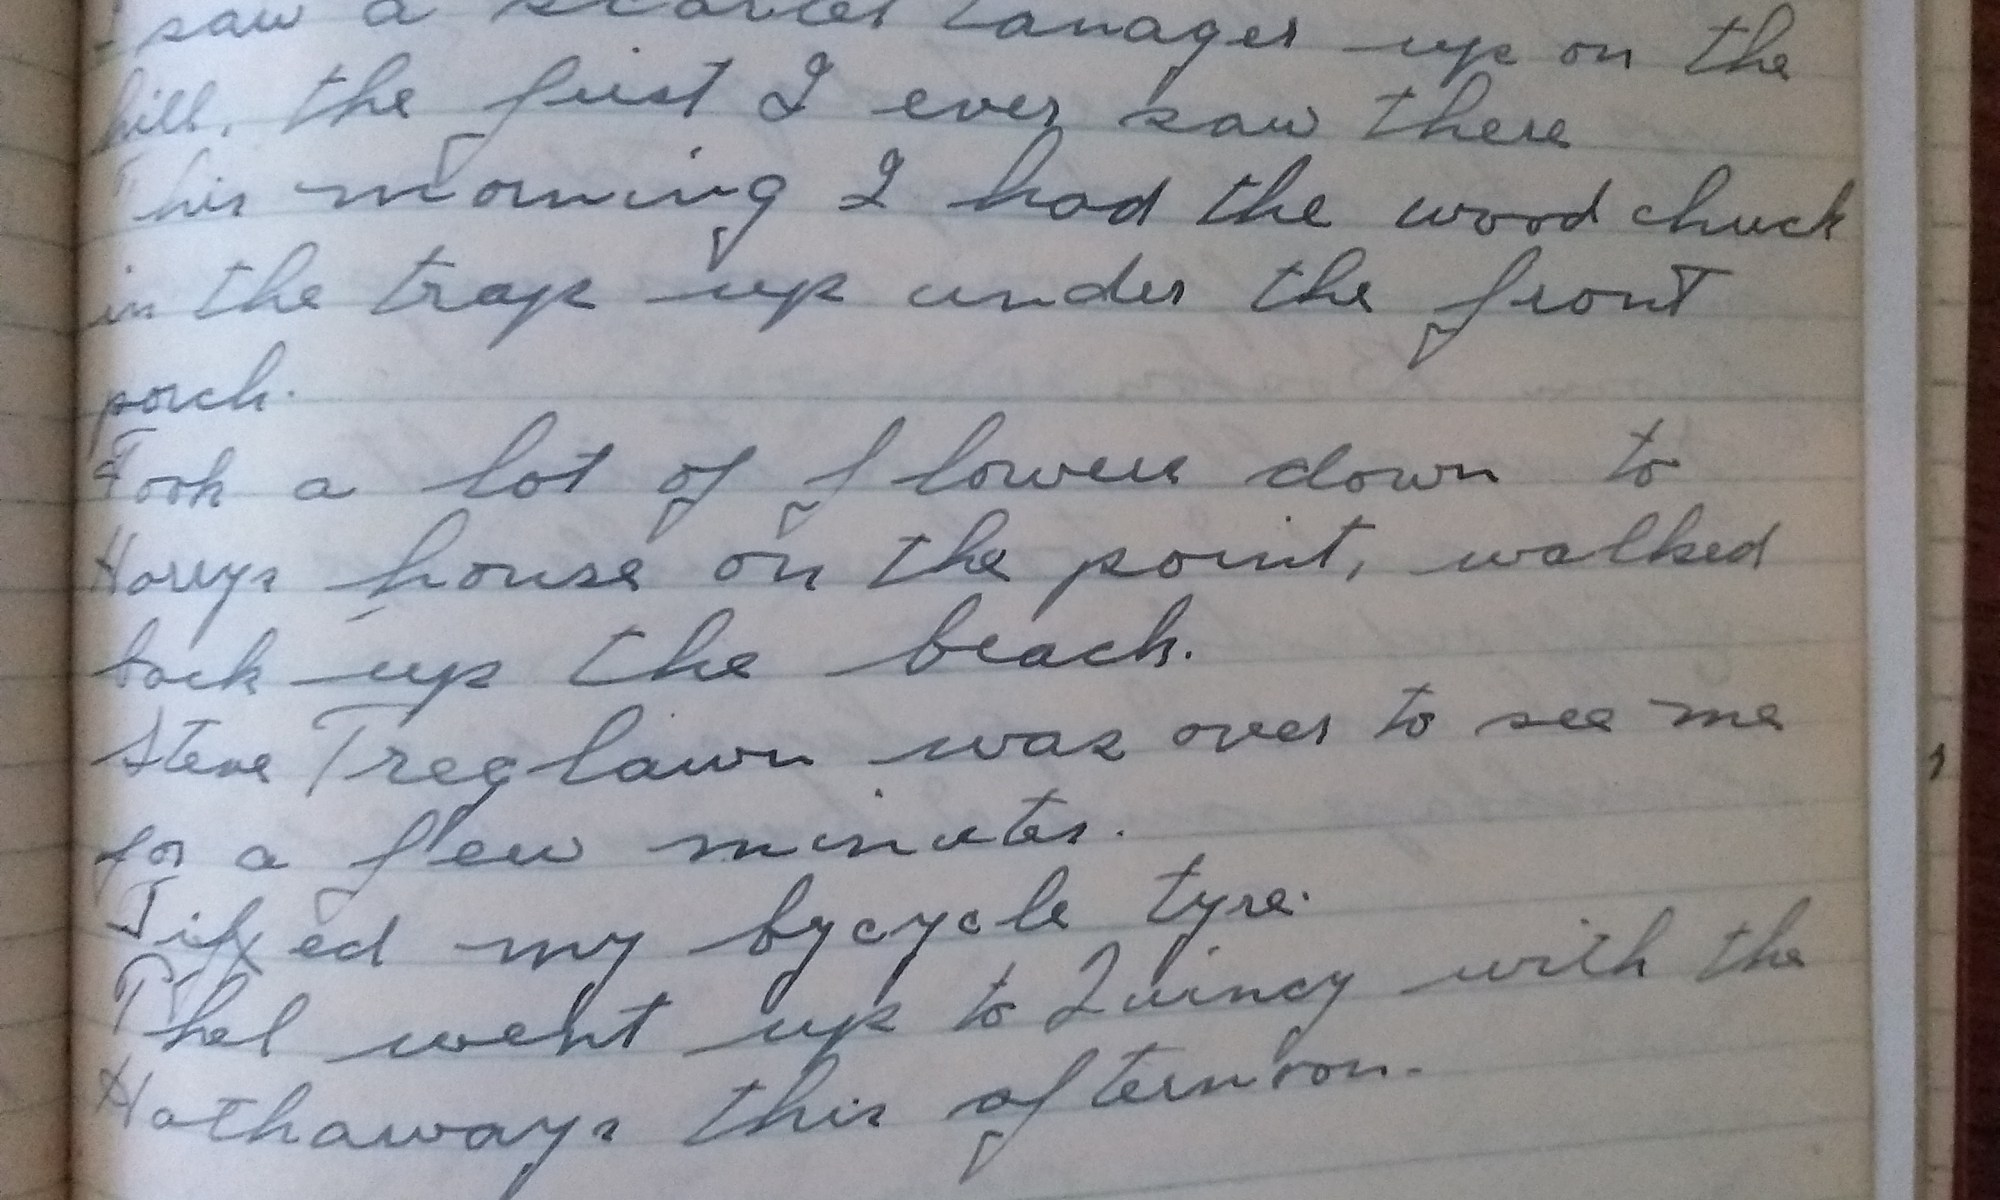 I saw a scarlet tanager up on the
hill, the first I ever saw there
This morning I had the wood chuck
in the trap up under the front
porch.
Took a lot of flowers down to
Harrys house on the point, walked
back up the beach.
Steve Treglawn was over to see me
for a few minutes.
Fixed my bycycle tyre.
Thel went up to Quincy with the
Hathaways this afternoon.